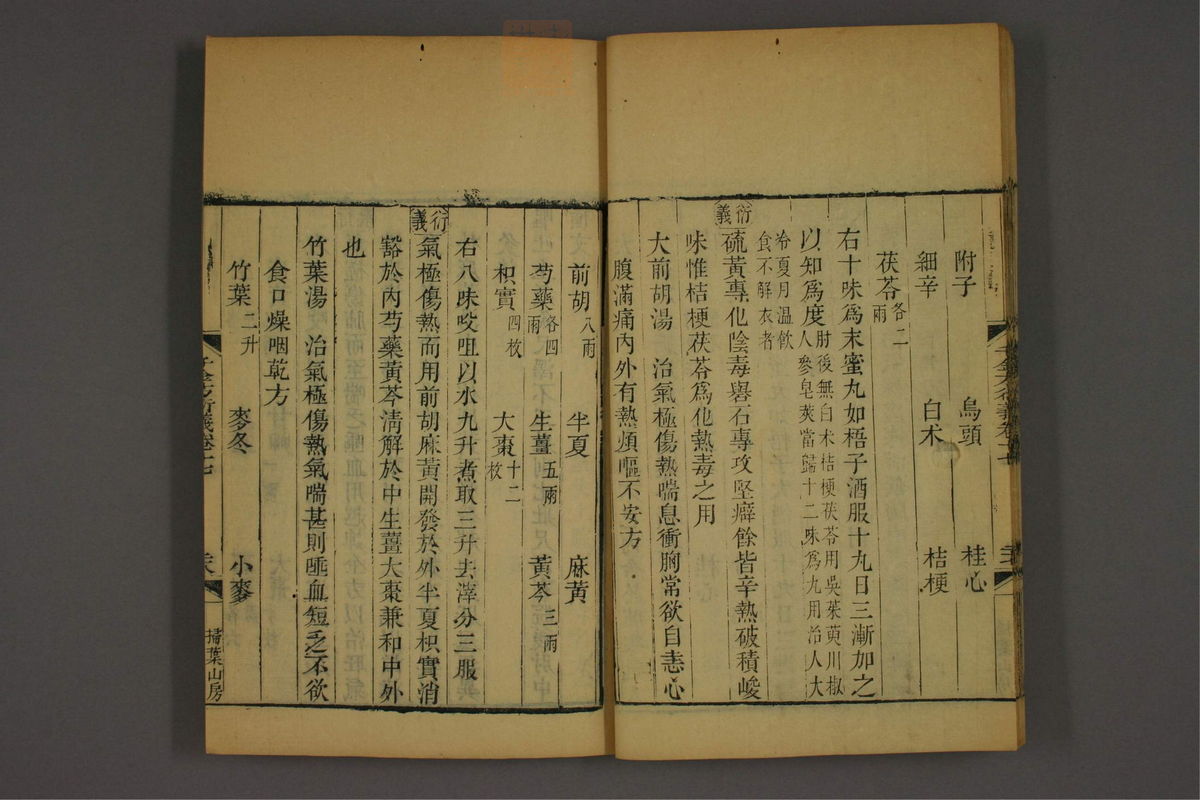 附子　烏頭　桂心
細辛　白朮　桔梗
茯苓各二兩
右十味爲末蜜丸如梧子酒服十九日三漸加之
以知爲度肘後無白朮桔梗茯苓用吳茱萸川椒人參皂莢當歸十二味爲丸用治人大
冷夏月溫飲食不解衣者
衍義
硫黃專化陰毒礜石專攻堅癖餘皆辛熱破積峻
味惟桔梗茯苓爲化熱毒之用
大前胡湯　治氣極傷熱喘息衝胸常欲自恚心
腹滿痛內外有熱煩嘔不安方
前胡八兩　半夏　麻黃
芍藥各四兩　生薑五兩　黃芩三兩
枳實四枚　大棗十二枚
右八味㕮咀以水九升煮取三升去滓分三服
衍義
氣極傷熱而用前胡麻黃開發於外半夏枳實消
豁於內芍藥黃芩淸解於中生薑大棗兼和中外
也
竹葉湯　治氣極傷熱氣喘甚則唾血短乏不欲
食口燥咽乾方
竹葉二升　麥冬　小麥
千金方衍義卷十七
掃葉山房